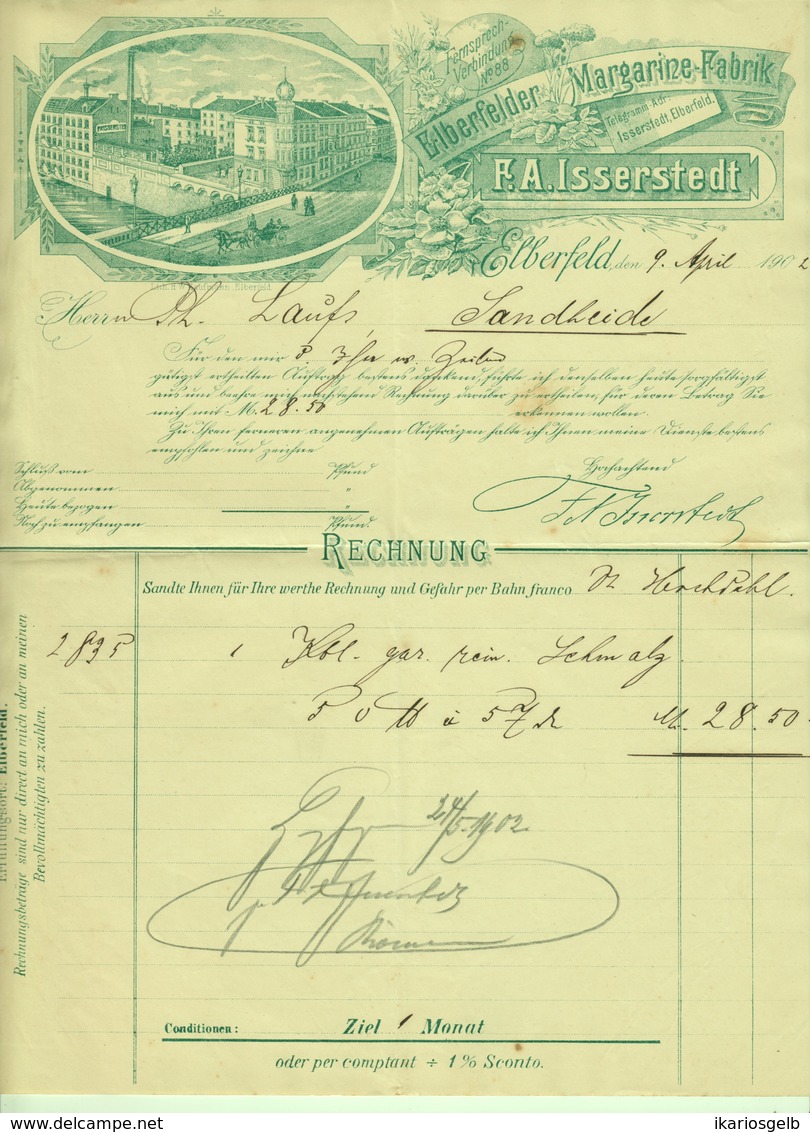 Fernsprech-
Verbindung
No 88
Elberfelder Margarine-Fabrik
Telegramm-Adr:
Isserstedt, Elberfeld.
F. A. Isserstedt
Elberfeld, den 9. April 1902
Herrn Ph. Laufs, Sandheide
Für den mir
gütigst ertheilten Auftrag bestens dankend, führte ich denselben heute sorgfältigst
aus und beehre mich nachstehend Rechnung darüber zu ertheilen, für deren Betrag Sie
mich mit M. 28.50 erkennen wollen.
Zu Ihren ferneren angenehmen Aufträgen halte ich Ihnen meine Dienste bestens
empfohlen und zeichne
Hochachtend
Schluß vom Pfund
Abgenommen "
Heute bezogen "
Noch zu empfangen Pfund.
F A Isserstedt
RECHNUNG
Sandte Ihnen für Ihre werthe Rechnung und Gefahr per Bahn franco St Hochdahl.
2835 1 Kbl. gar. rein. Schmalz
50 ℔ à 57 M. 28.50
24/5.1902.
Erfüllungsort: Elberfeld.
Rechnungsbeträge sind nur direct an mich oder an meinen
Bevollmächtigten zu zahlen.
Conditionen: Ziel 1 Monat
oder per comptant ÷ 1% Sconto.
ikariosgelb